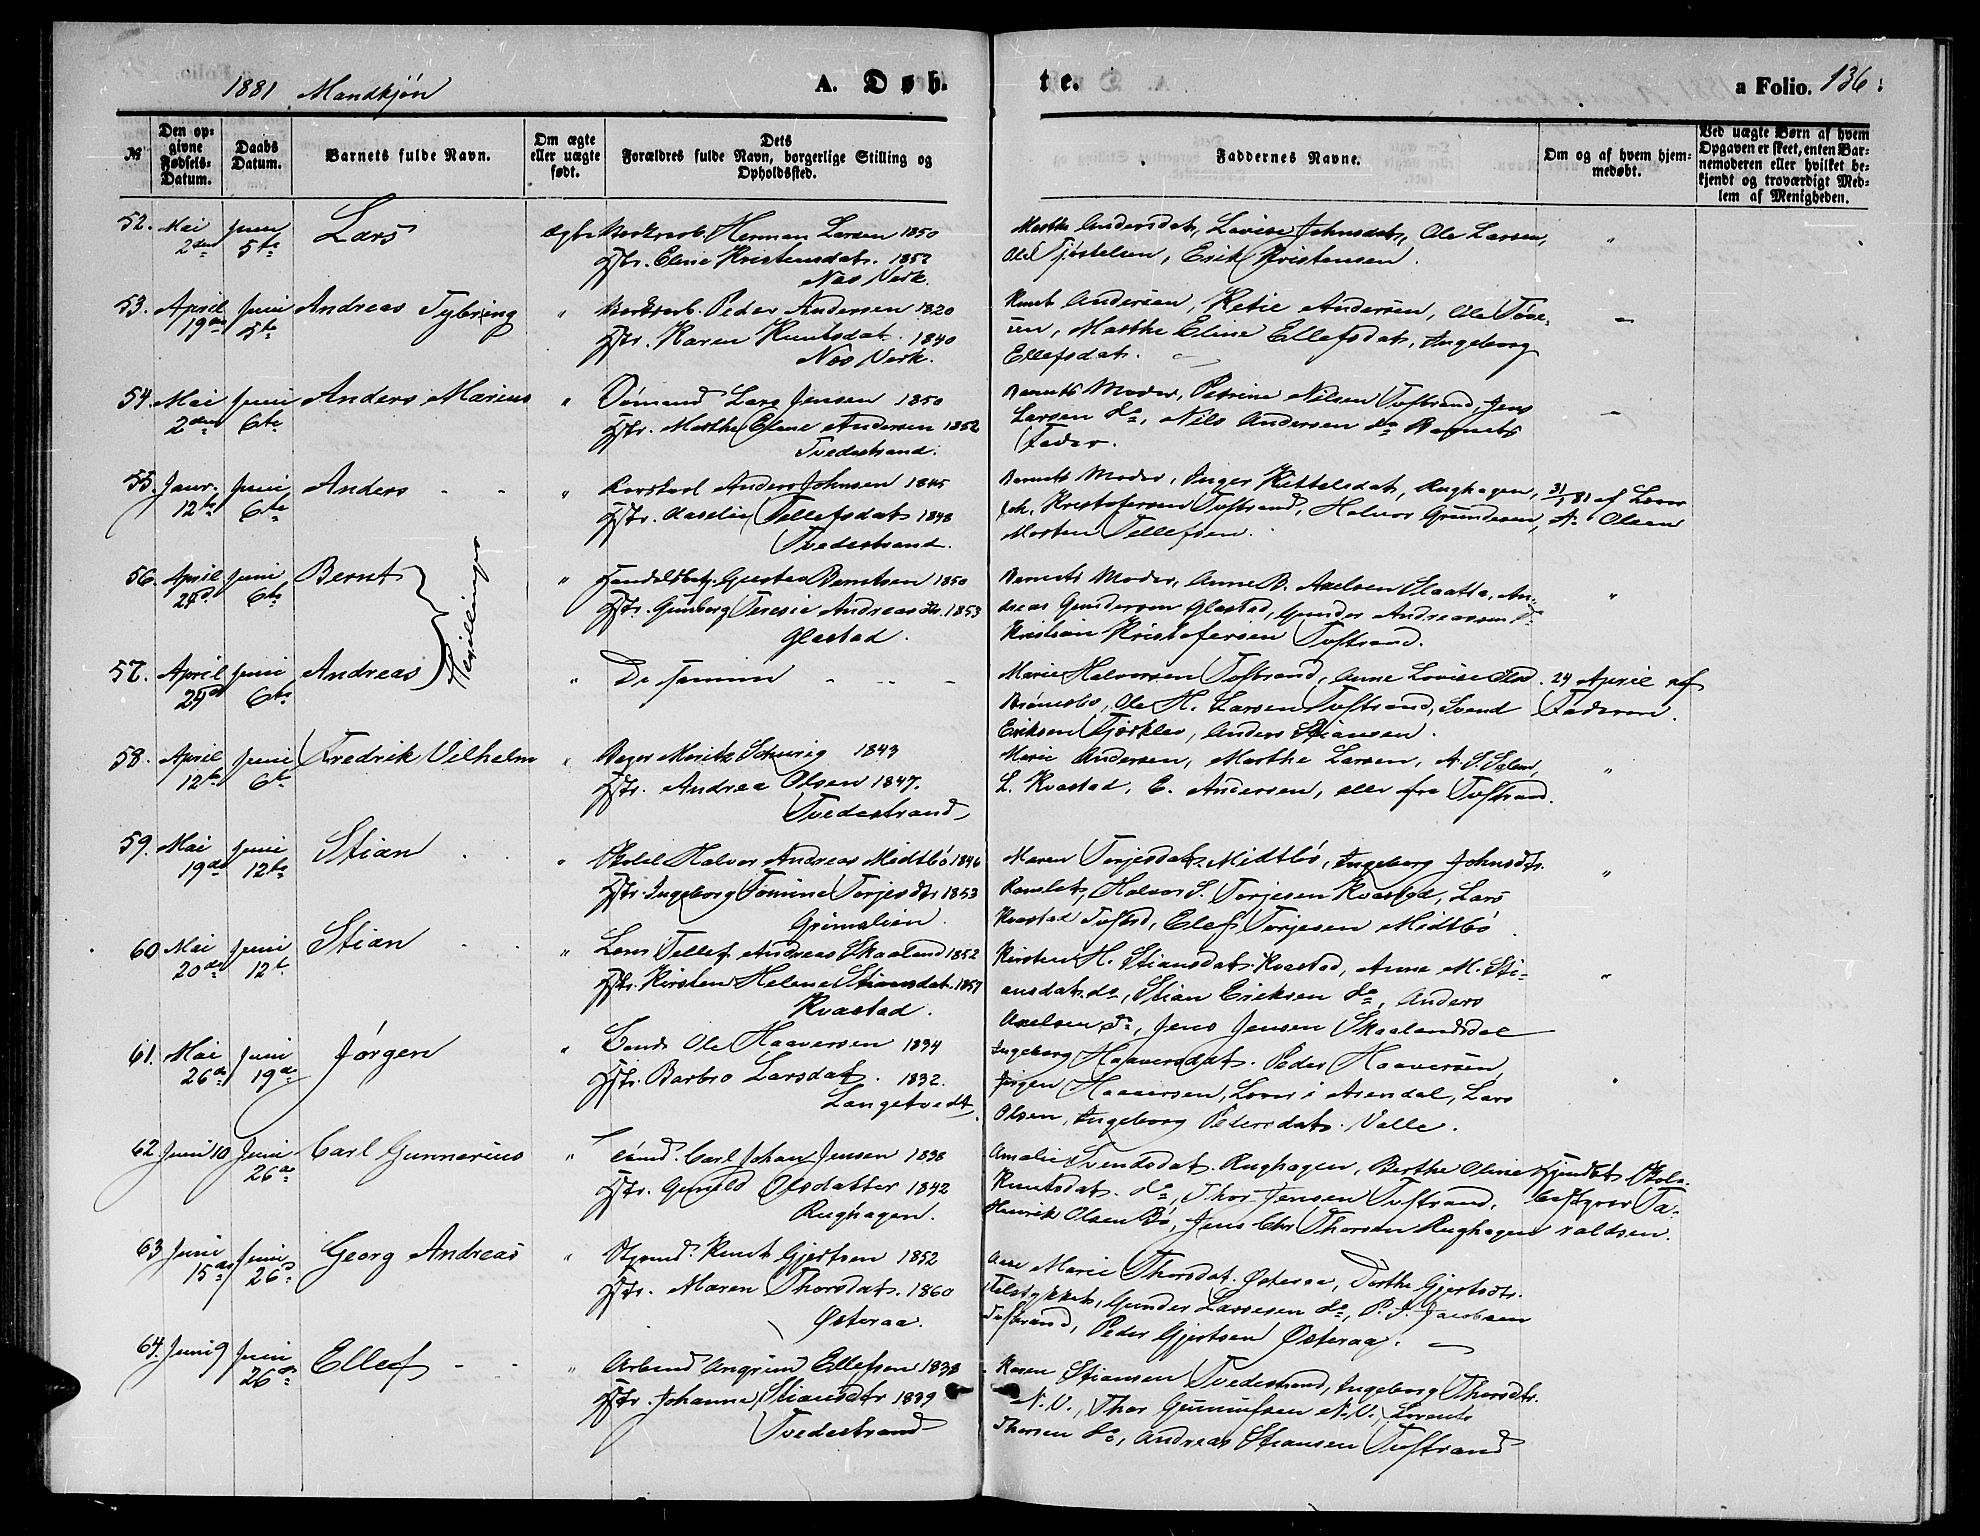 1881 Mandkjøn
A. Døb.
te.
a Folio. 136.
№
Den opgivne Fødsels-Datum.
Daabs Datum.
Barnets fulde Navn.
Om ægte eller uægte født.
Dets Forældres fulde Navn, borgerlige Stilling og Opholdssted.
Faddernes Navne.
Om og af hvem hjemmedøbt.
Ved uægte Børn af hvem Opgaven er skeet, enten Barnemoderen eller hvilket bekjendt og troværdigt Medlem af Menigheden.
52. Mai 2den Juni 5te Lars ægte Herman Larsen 1850
Hstr. Elene Kristensdat. 1852
Nes Verk.
Marthe Andersdat, Lovise Johnsdat, Ole Larsen,
Ole Tjøstelsen, Erik Kristensen.
53. April 19de Juni 5te Andreas Tybring " Peder Andersen 1820
Hstr. Karen Knutsdat. 1840
Nes Verk.
Knut Andersen, Ketie Andersen, Ole
Marthe Elene Ellefsdat, Ingeborg
Ellefsdat.
54. Mai 2den Juni 6te Anders Marius " Sømand Lars Jensen 1850
Hstr. Marthe Elene Andersen 1852
Tvedestrand.
Barnets Moder, Petrine Nilsen Tvstrand, Jens
Larsen do, Nils Andersen do Barnets
Fader.
55. Janr. 12te Juni 6te Anders " Anders Johnsen 1845
Hstr. Aaselie Tellefsdat 1848
Tvedestrand.
Barnets Moder, Inger Kittelsdat, Rughagen,
Joh. Kristofersen Tvstrand, Halvor Gundersen,
Morten Tellefsen.
af Lars
A. Olsen
56. April Juni 6te Bernt " Gustav Berntsen 1850
Hstr. Gunborg Teresie Andreasdtr. 1853
Glastad.
Barnets Moder, Anne B. Axelsen Slaatta, An-
dreas Gundersen Glastad, Gunder Andreassen do
Kristian Kristofersen Tvstrand.
Tvillinger
57. April Juni 6te Andreas " De samme
Marie Halvorsen Tvstrand, Anne Lovise
Ole H. Larsen Tvstrand, Svend
Eriksen Anders Stiansen.
24 April af
Faderen.
58. April 12te Juni 6te Fredrik Vilhelm " Bager Moritz Schurig 1843
Hstr. Andrea Olsen 1847.
Tvedestrand
Marie Andersen, Marthe Larsen,
L. Kvastad, E. Andersen, alle fra Tvstrand.
59. Mai 19de Juni 12te Stian " Halvor Andreas Midtbö 1846
Hstr. Ingeborg Tomine Torjesdtr 1853
Grimelien.
Maren Torjesdat. Midtbö, Ingeborg Johnsdtr.
Ramslet, Halvor S. Torjesen Kvastad, Lars
Kvastad Tvstrd, Elef Torjesen Midtbö.
60. Mai 20de Juni 12te Stian " Tellef Andreas Skaaland 1852
Hstr. Kirsten Helene Stiansdat. 1857
Kvastad.
Kirsten H. Stiansdat. Kvastad, Anne M. Sti-
ansdat. do, Stian Eriksen do, Anders
Axelsen do, Jens Jensen Skaalandsdal
61. Mai 26de Juni 19de Jørgen " Ole Haaversen 1834
Hstr. Barbro Larsdat. 1832.
Langetvedt.
Ingeborg Haaversdat. Peder Haaversen,
Jørgen Haaversen, i Arendal, Lars
Olsen, Ingeborg Pedersdat. Valle.
62. Juni 10 Juni 26de Carl Gunnarius " Carl Johan Jensen 1838
Hstr. Gunild Olsdatter 1842
Rughagen.
Amalie Svendsdat. Rughagen, Berthe Oline
Knutsdat. do, Thor Jensen Tvstrand,
Henrik Olsen Bø, Jens Chr Thorsen Rughagen
Ta-
raldsen.
63. Juni 15de Juni 26de Georg Andreas " Knut Gjertsen 1852
Hstr. Maren Thorsdat. 1860
Østeraa.
Marie Thorsdat. Østeraa, Dorthe Gjertsdtr.
Gunder Larsesen do, P. J. Jacobsen
Tvstrand, Peder Gjertsen Østeraa.
64. Juni 9 Juni 26de Ellef " Ellefsen 1838
Hstr. Johanne Stiansdtr 1839
Tvedestrand
Karen Stiansen Tvedestrand, Ingeborg Thorsdtr.
N. V., Thor Gunnufsen N. V., Lorents
Thorsen do, Andreas Stiansen Tvstrand